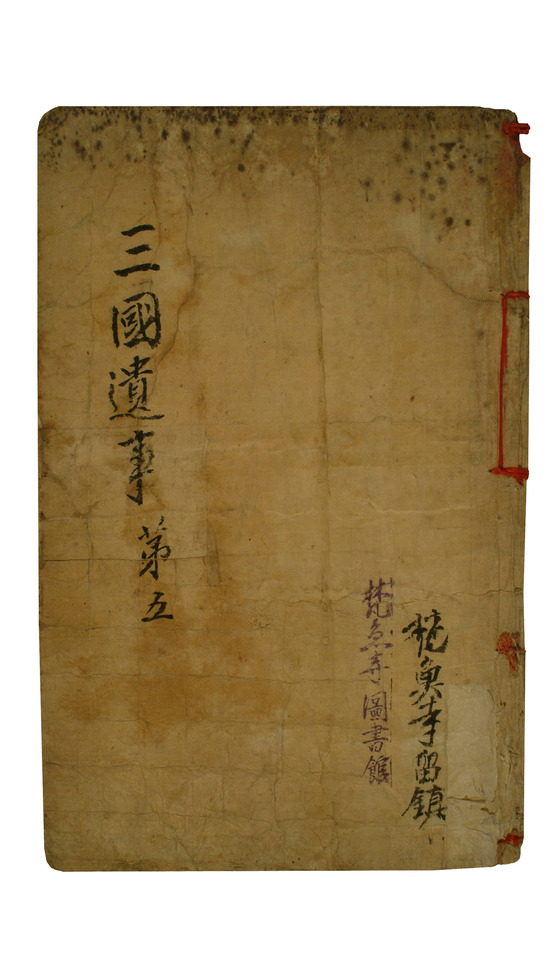 三國遺事 第五
梵魚寺留鎮
梵魚寺圖書館